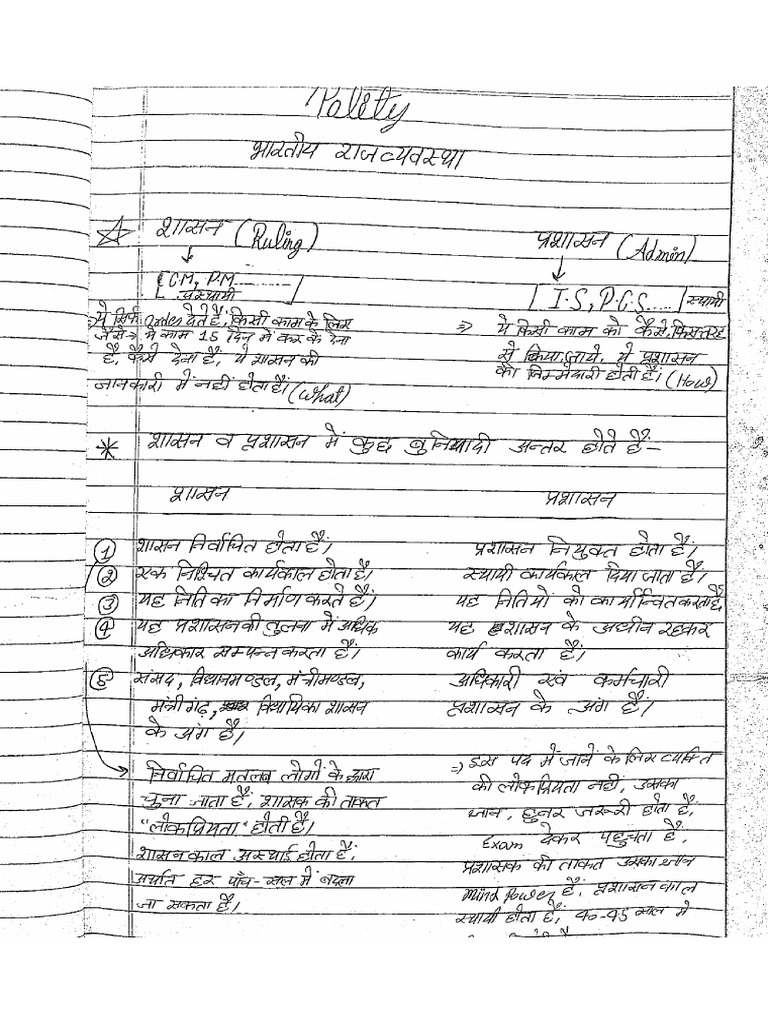 Polity
भारतीय राजव्यवस्था
शासन (Ruling)
प्रशासन (Admin)
C.M, P.M......
अस्थायी
I.S, P.C.S..... स्थायी
⇒ ये सिर्फ order देते हैं, किसी काम के लिए
जैसे → ये काम 15 दिन में कर के देना
है, कैसे देना है, ये शासन की
जानकारी में नहीं होता है। (What)
⇒ ये किसी काम को कैसे, किस तरह
से किया जाये, ये प्रशासन
की जिम्मेदारी होती है। (How)
* शासन व प्रशासन में कुछ बुनियादी अन्तर होते हैं-
शासन
प्रशासन
① शासन निर्वाचित होता है।
प्रशासन नियुक्त होता है।
② एक निश्चित कार्यकाल होता है।
स्थायी कार्यकाल दिया जाता है।
③ यह निति का निर्माण करते हैं।
यह नितियों को कार्यान्वित करता है
④ यह प्रशासन की तुलना में अधिक
अधिकार सम्पन्न करता है।
यह शासन के अधीन रहकर
कार्य करता है।
⑤ संसद, विधानमण्डल, मंत्रीमण्डल,
मंत्रीगंढ़, विधायिका शासन
के अंग हैं।
अधिकारी एवं कर्मचारी
प्रशासन के अंग हैं।
निर्वाचित मतलब लोगों के द्वारा
चुना जाता है, शासक की ताकत
"लोकप्रियता" होती है।
शासनकाल अस्थाई होता है,
अर्थात हर पाँच-साल में बदला
जा सकता है।
⇒ इस पद में जानें के लिए व्यक्ति
की लोकप्रियता नही, उसका
ज्ञान, हुनर जरूरी होता है,
Exam देकर पहुचता है,
प्रशासक की ताकत उसका ज्ञान
mind power है, प्रशासनकाल
स्थायी होता है, 40-45 साल में